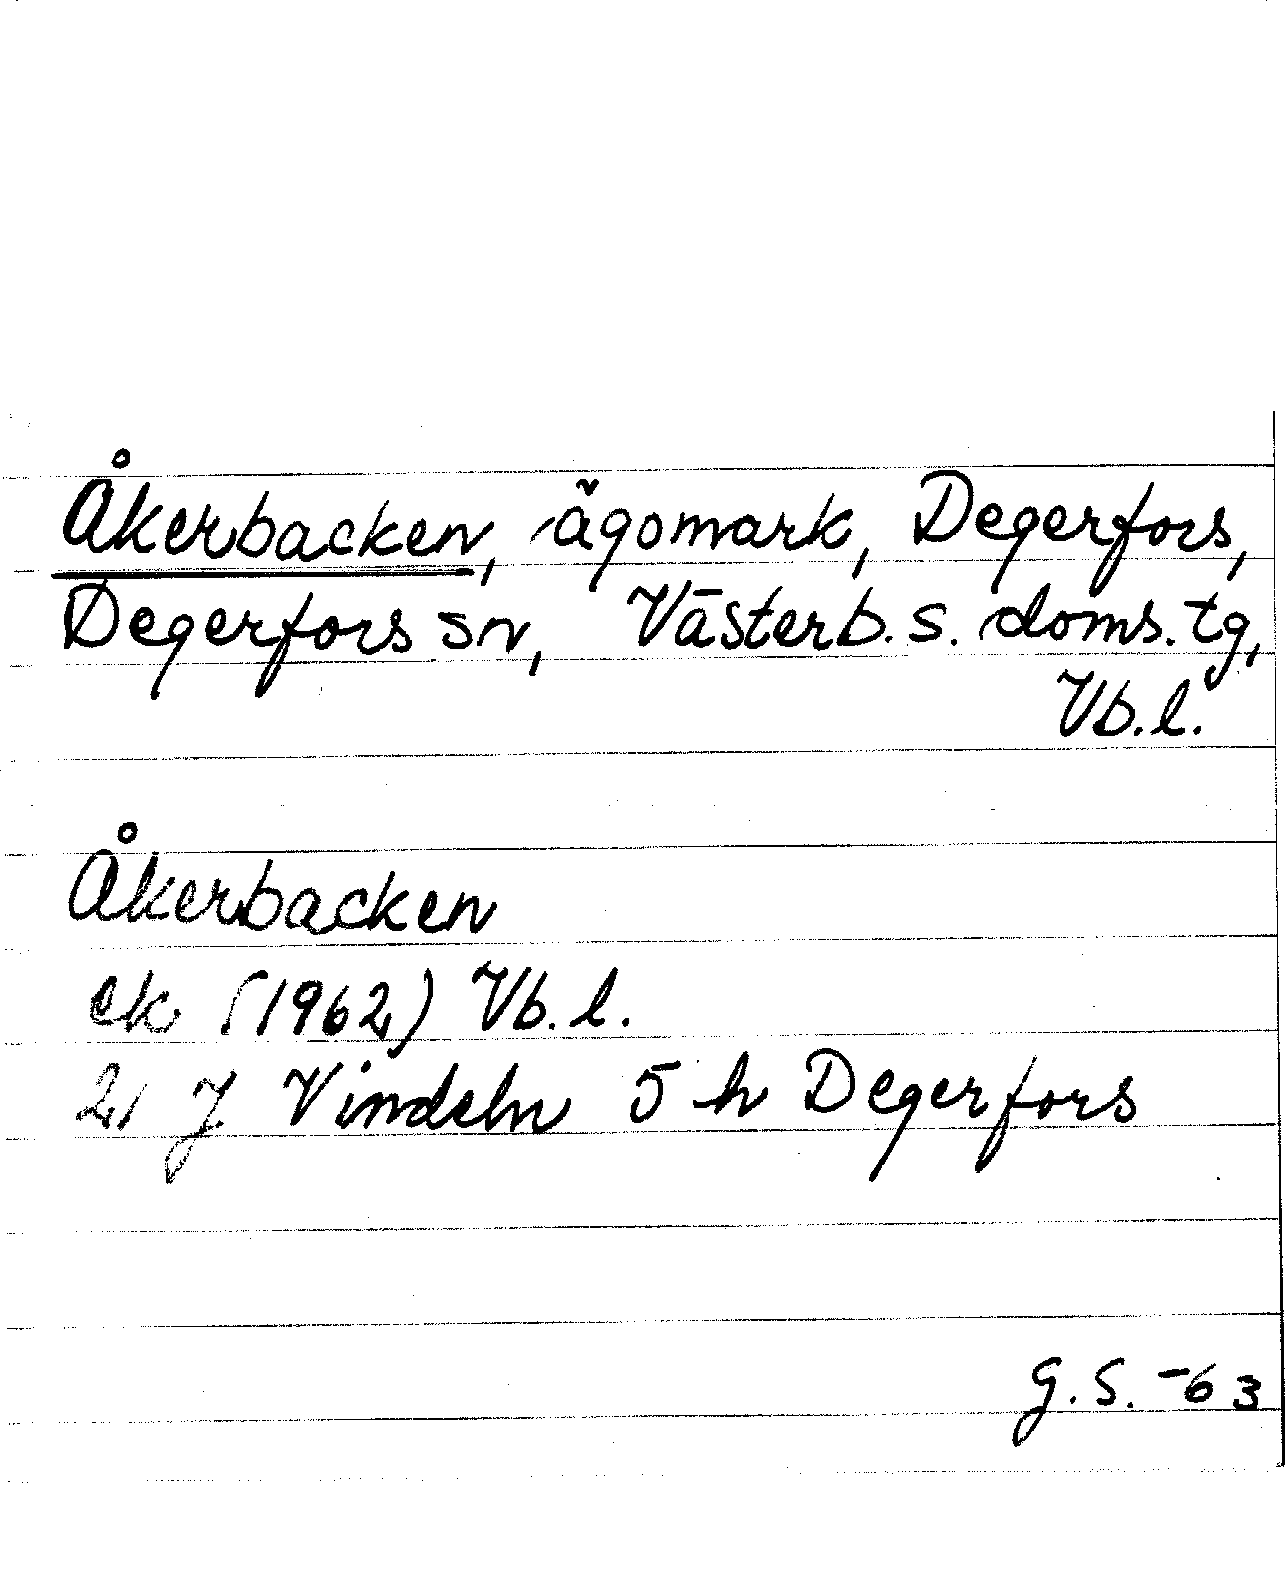 Åkerbacken, ägomark, Degerfors,
Degerfors sn, Västerb. s. doms. tg,
Vb. l.
Åkerbacken
ek (1962) Vb. l.
21 J Vindeln 5 h Degerfors
G. S. -63